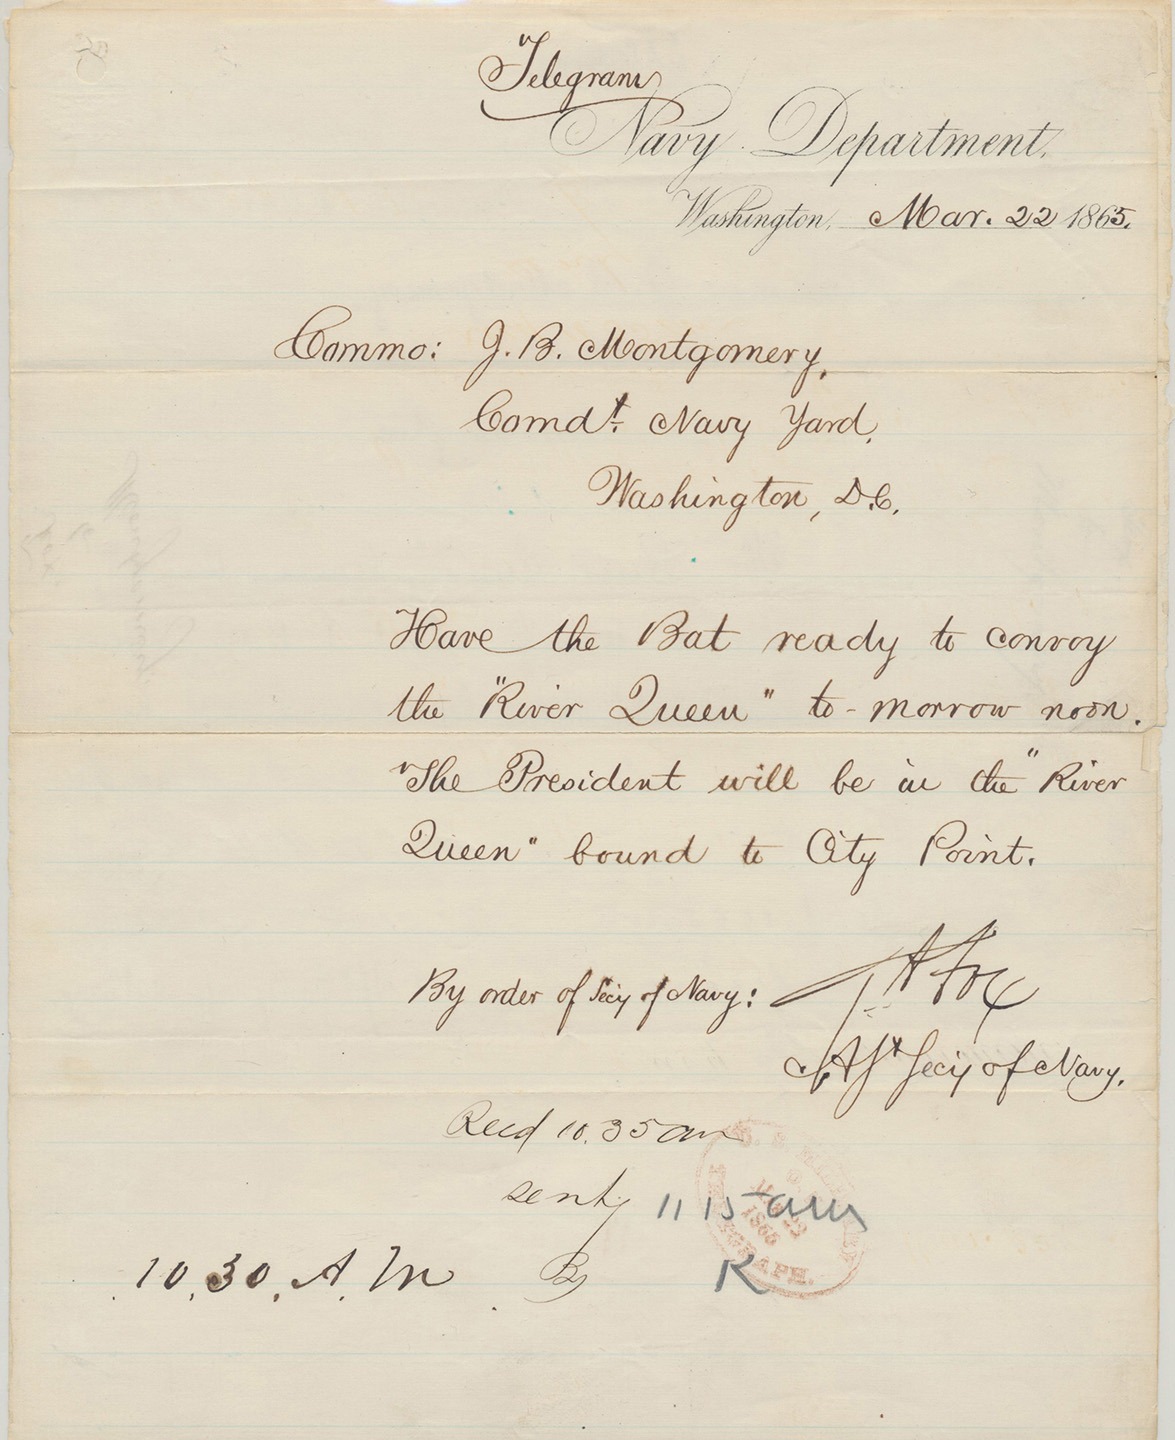 Telegram
Navy Department,
Washington, Mar. 22 1865.
Commo: J. B. Montgomery,
Comdt. Navy Yard,
Washington, D.C.
Have the Bat ready to convoy
the "River Queen" to-morrow noon.
The President will be in the "River
Queen" bound to City Point.
By order of Secy of Navy: G A Fox
Asst Secy of Navy.
Recd 10.35 am
sent 11 15 am
10.30. A. M By K
1865
TELEGRAPH.